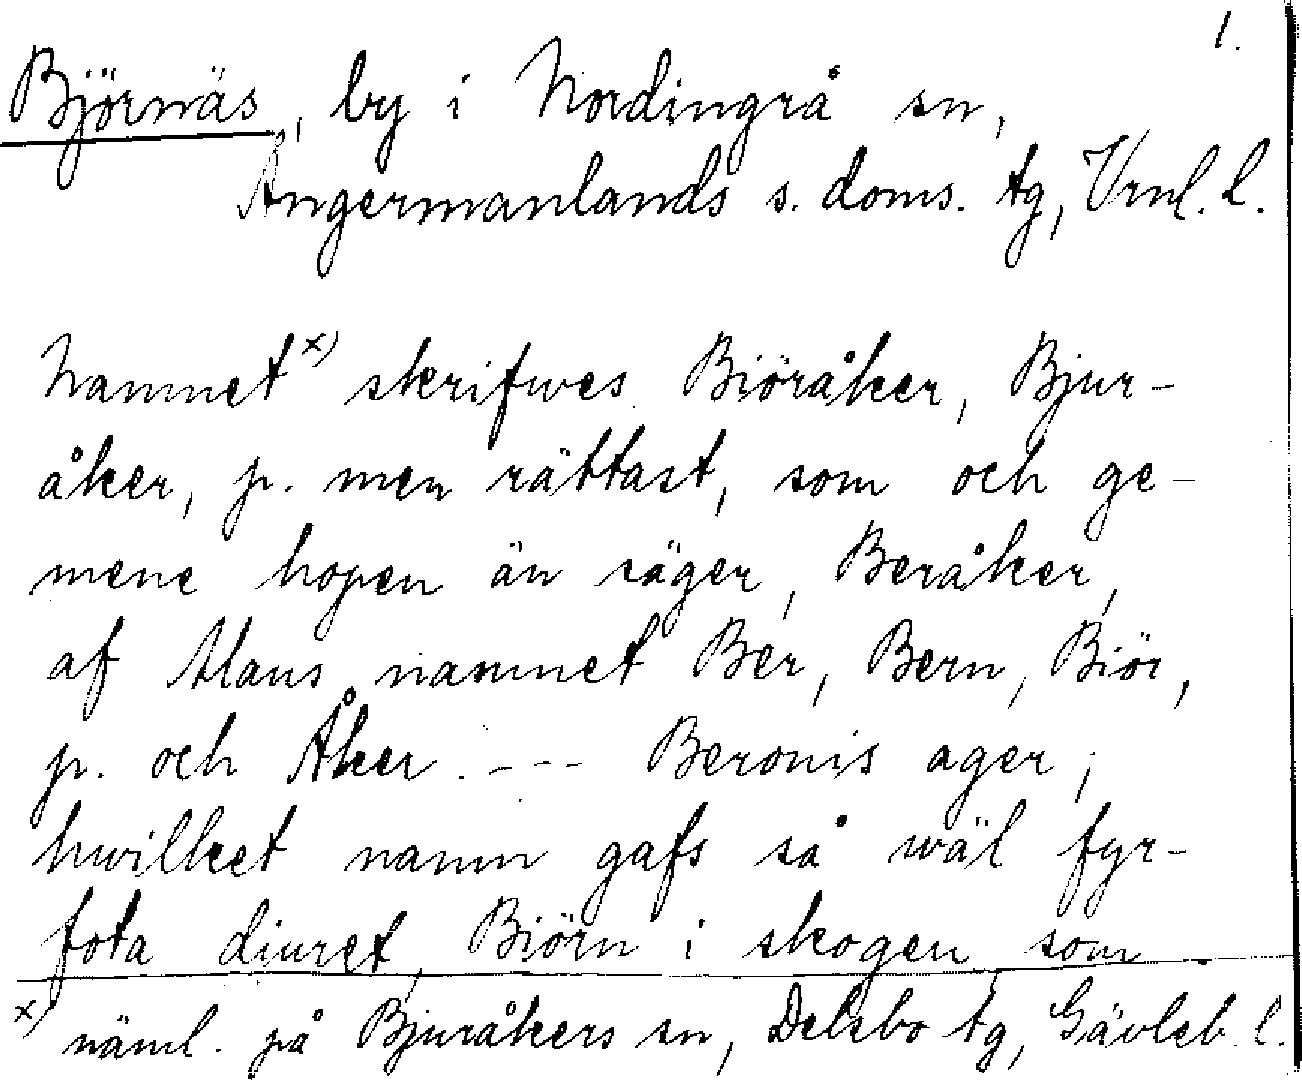 1.
Björnäs, by i Nordingrå sn,
Ångermanlands s. doms. tg, Vrnl. l.
Namnet x) skrifwes Biöråker, Bjur-
åker, p. men rättast, som och ge-
mene hopen än säger, Beråker,
af Mans namnet Ber, Bern, Biör,
p. och Åker. --- Beronis ager;
hwilket namn gafs så wäl fyr-
fota diuret, Biörn i skogen, som
x) näml. på Bjuråkers sn, Delsbo tg, Gävleb. l.